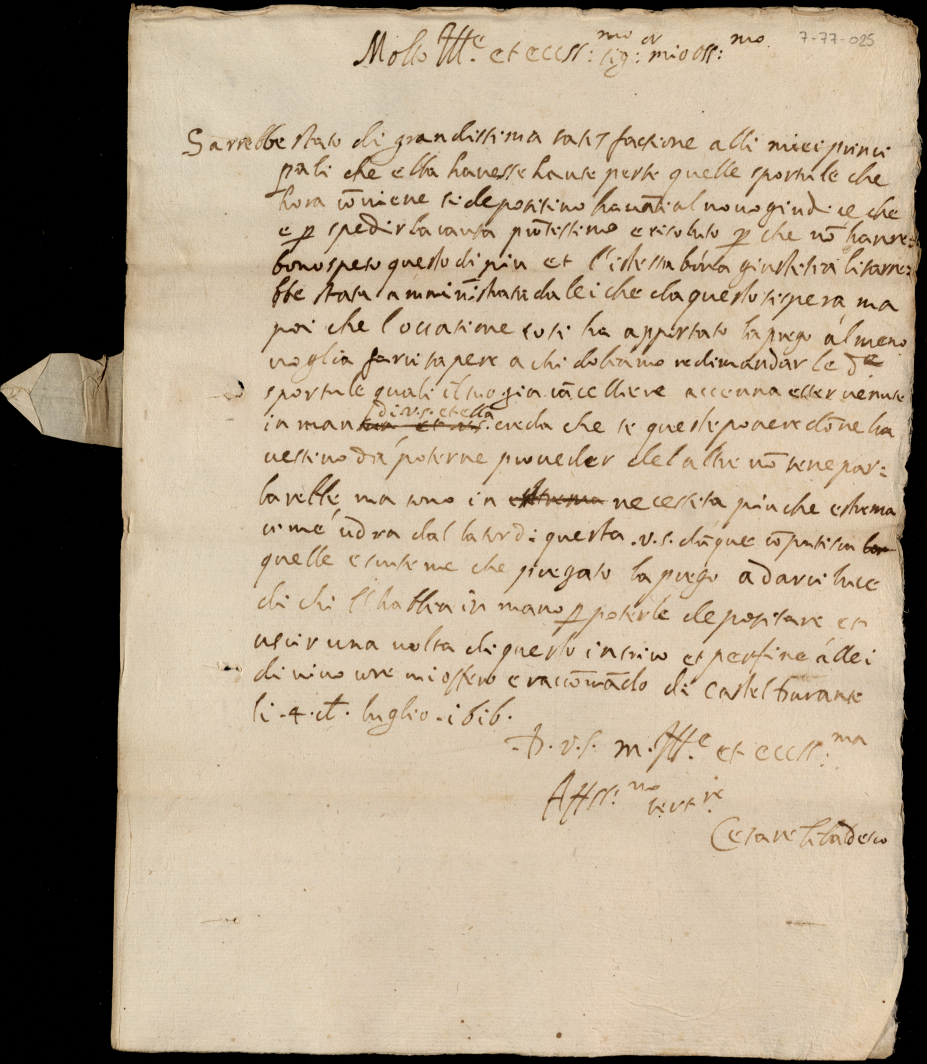 7-77-025
Molto Ill.e et eccss:mo sig:or mio oss:mo
Sarrebbe stato di grandissima satisfactione alli miei princi
pali che ella havesse haute perse quelle sportule che
hora cōviene si depositino havāti al novo giudice che
e p spedir la causa prōtissimo e risoluto p che nō havre:
bono speso questo di piu et l'istessa giustitia li sarre:
bbe stata amministrata da lei che da questo si spera ma
poi che l'occasione cosi ha apportato la prego almeno
voglia farci sapere a chi dobiamo redimandar le de
sportule quali il suo gia cācelliere accenna esser venute
in man di v.s. et ella creda che se queste povere dōne ha
vessino da poterne proveder del altre nō se ne par:
larebbe ma sono in estrema necessita piu che estrema
come udra dal lator di questa .v.s. dūque cō
quelle e scuseme che pregato la prego a darci luce
di chi l'habbia in mano p poterle depositare et
uscir una volta di questo intrico et per fine á lei
di vivo core mi offero e raccomādo di Castel durante
li .4. di luglio .1616.
D.v.s. m. Ill.e et eccss:ma
Aff.mo ser.re
Cesare